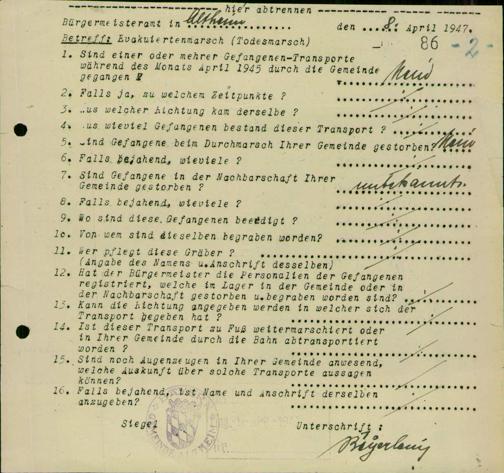 hier abtrennen
Bürgermeisteramt in Altheim den 8. April 1947.
Betreff: Evakuiertenmarsch (Todesmarsch) 86 - 2 -
1. Sind einer oder mehrer Gefangenen-Transporte
während des Monats April 1945 durch die Gemeinde
gegangen ? Nein
2. Falls ja, zu welchem Zeitpunkte ?
3. .us welcher Richtung kam derselbe ?
4. .us wieviel Gefangenen bestand dieser Transport ?
5. .ind Gefangene beim Durchmarsch Ihrer Gemeinde gestorben? Nein
6. Falls bejahend, wieviele ?
7. Sind Gefangene in der Nachbarschaft Ihrer
Gemeinde gestorben ? unbekannt.
8. Falls bejahend, wieviele ?
9. Wo sind diese Gefangenen beerdigt ?
10. Von wem sind dieselben begraben worden?
11. Wer pflegt diese Gräber ?
(Angabe des Namens u.Anschrift desselben)
12. Hat der Bürgermeister die Personalien der Gefangenen
registriert, welche im Lager in der Gemeinde oder in
der Nachbarschaft gestorben u.begraben worden sind?
13. Kann die Richtung angegeben werden in welcher sich der
Transport begeben hat ?
14. Ist dieser Transport zu Fuß weitermarschiert oder
in Ihrer Gemeinde durch die Bahn abtransportiert
worden ?
15. Sind noch Augenzeugen in Ihrer Gemeinde anwesend,
welche Auskunft über solche Transporte aussagen
können?
16. Falls bejahend, ist Name und Anschrift derselben
anzugeben?
Siegel Unterschrift :